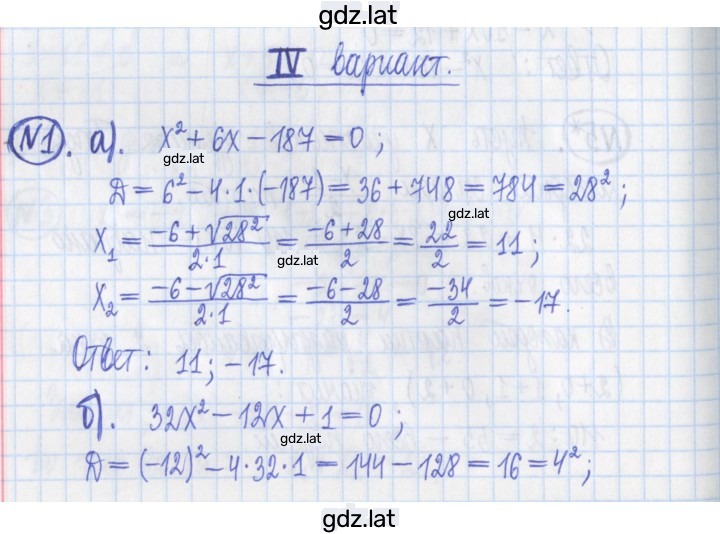 gdz.lat
IV вариант.
№1. а). x² + 6x − 187 = 0 ;
gdz.lat
Д = 6² − 4·1·(−187) = 36 + 748 = 784 = 28² ;
gdz.lat
x₁ = (−6 + √28²)/(2·1) = (−6 + 28)/2 = 22/2 = 11 ;
gdz.lat
x₂ = (−6 − √28²)/(2·1) = (−6 − 28)/2 = −34/2 = −17.
Ответ: 11 ; −17.
gdz.lat
б). 32x² − 12x + 1 = 0 ;
gdz.lat
Д = (−12)² − 4·32·1 = 144 − 128 = 16 = 4² ;
gdz.lat
gdz.lat